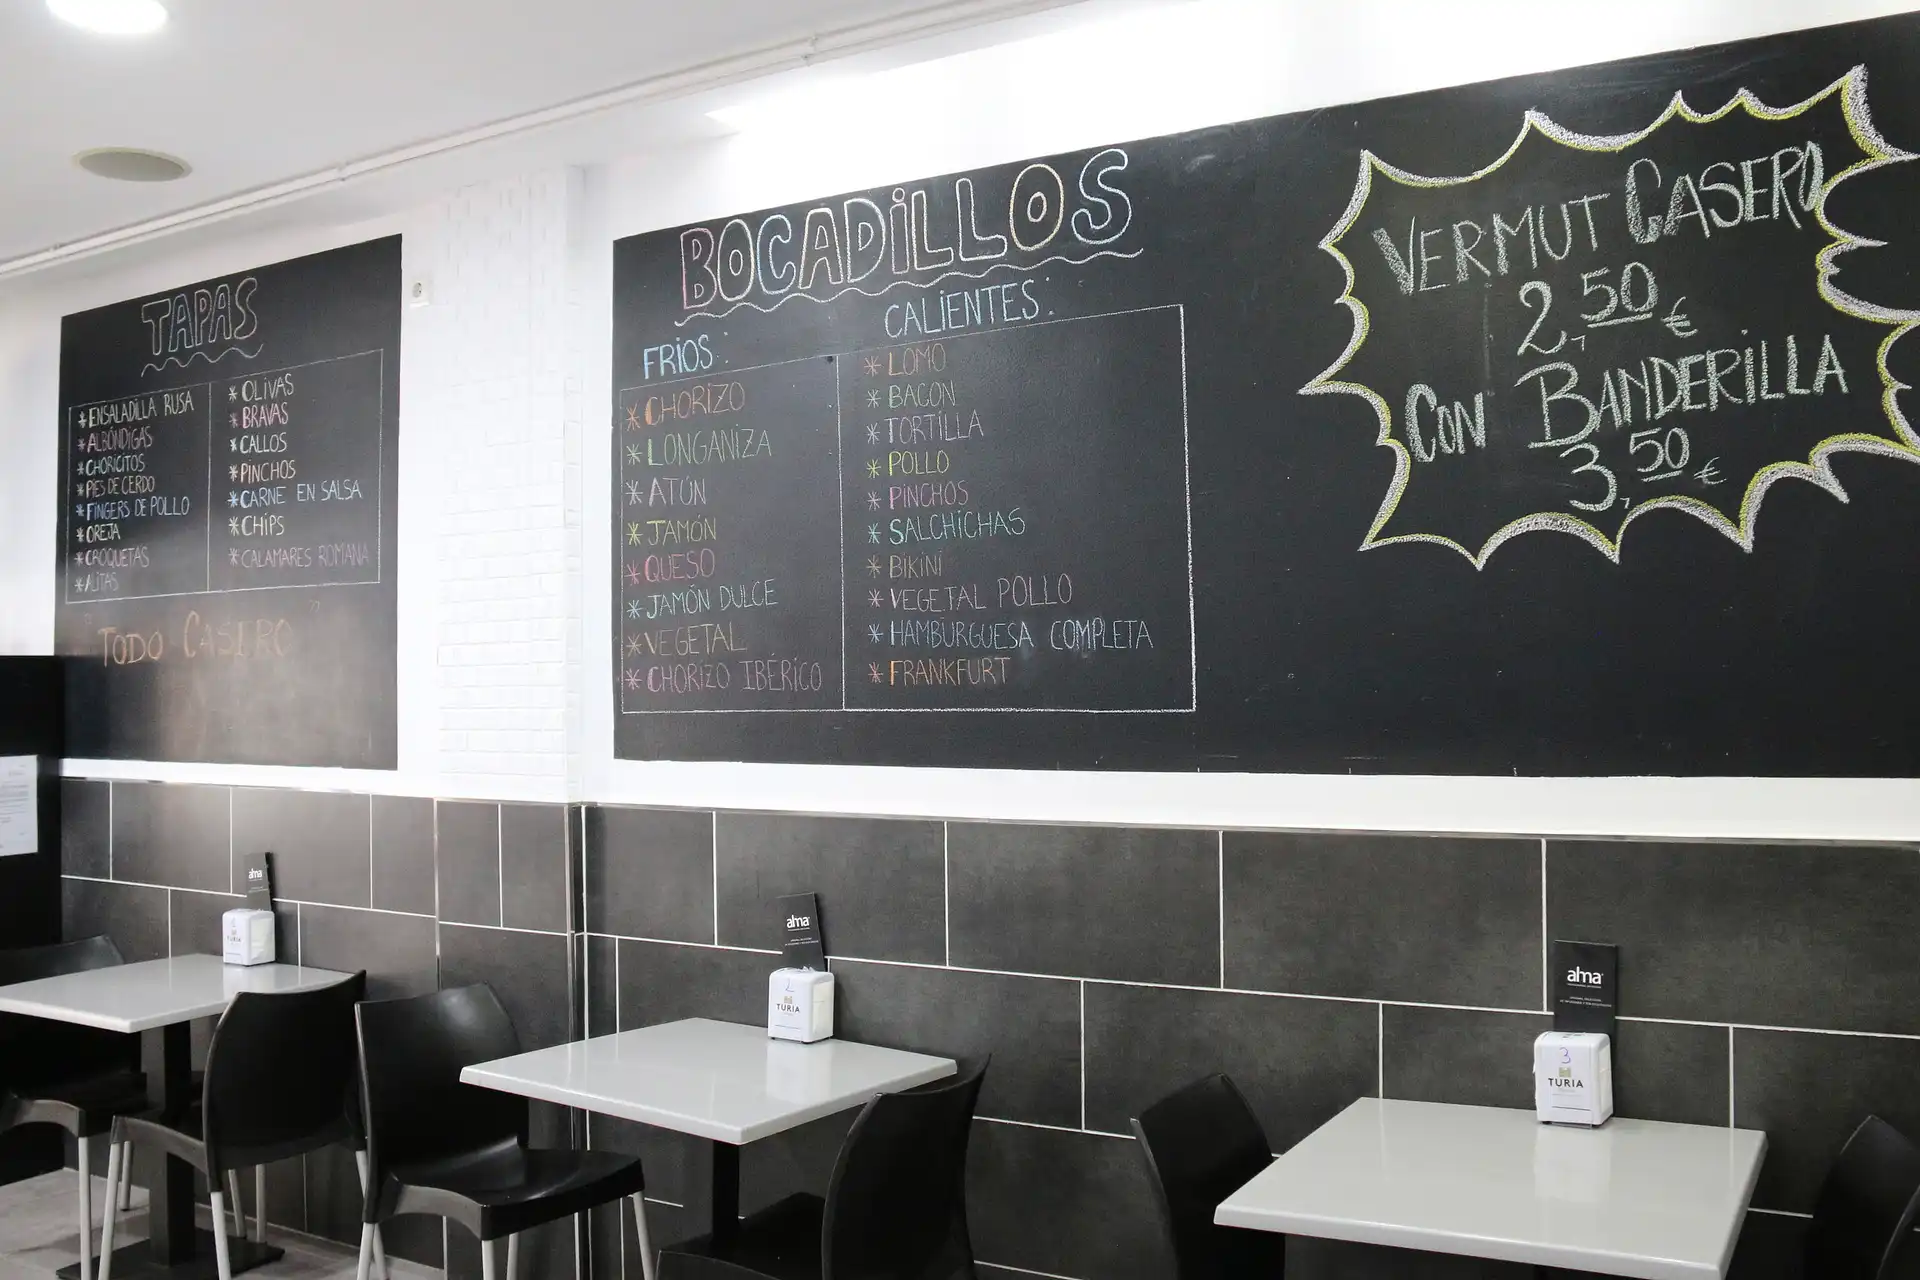 TAPAS
* ENSALADILLA RUSA
* ALBÓNDIGAS
* CHORICITOS
* PIES DE CERDO
* FINGERS DE POLLO
* OREJA
* CROQUETAS
* ALITAS
* OLIVAS
* BRAVAS
* CALLOS
* PINCHOS
* CARNE EN SALSA
* CHIPS
* CALAMARES ROMANA
TODO CASERO
BOCADILLOS
FRIOS:
* CHORIZO
* LONGANIZA
* ATÚN
* JAMÓN
* QUESO
* JAMÓN DULCE
* VEGETAL
* CHORIZO IBÉRICO
CALIENTES:
* LOMO
* BACON
* TORTILLA
* POLLO
* PINCHOS
* SALCHICHAS
* BIKINI
* VEGETAL POLLO
* HAMBURGUESA COMPLETA
* FRANKFURT
VERMUT CASERO
2,50 €
CON BANDERILLA
3,50 €
alma
TURIA
alma
2
TURIA
alma
3
TURIA